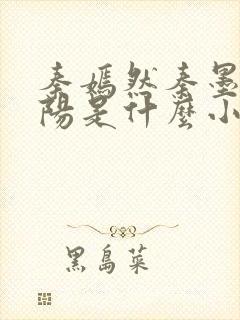 秦嫣然秦墨
陽是什麼小
黑島菜